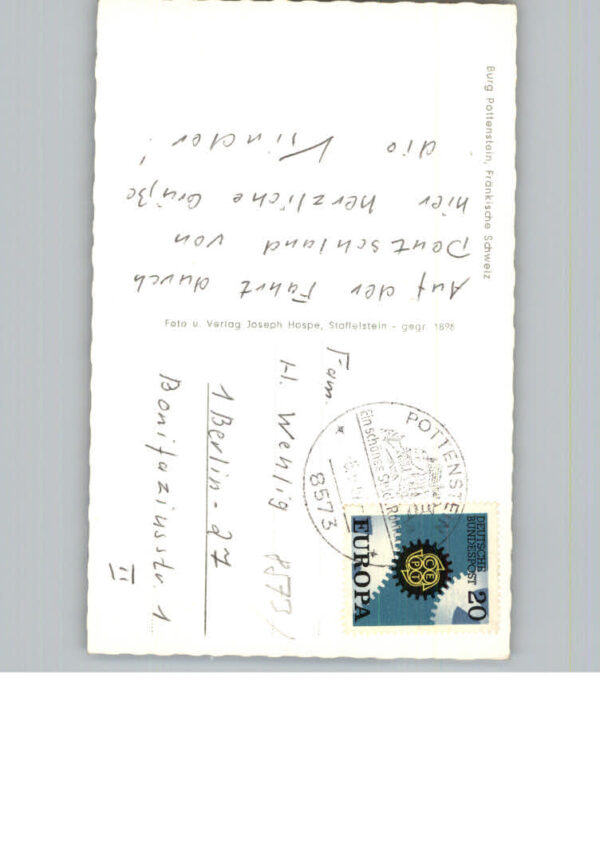 Burg Pottenstein, Fränkische Schweiz
Auf der Fahrt durch
Deutschland von
hier herzliche Grüße
die Kinder!
Foto u. Verlag Joseph Hospe, Staffelstein - gegr. 1898
Fam.
H. Wenlig
1 Berlin-27
Bonifaziusstr. 1
II
8573
POTTENSTEIN
Ein schönes Stück
8573
DEUTSCHE
BUNDESPOST
20
CEPT
EUROPA